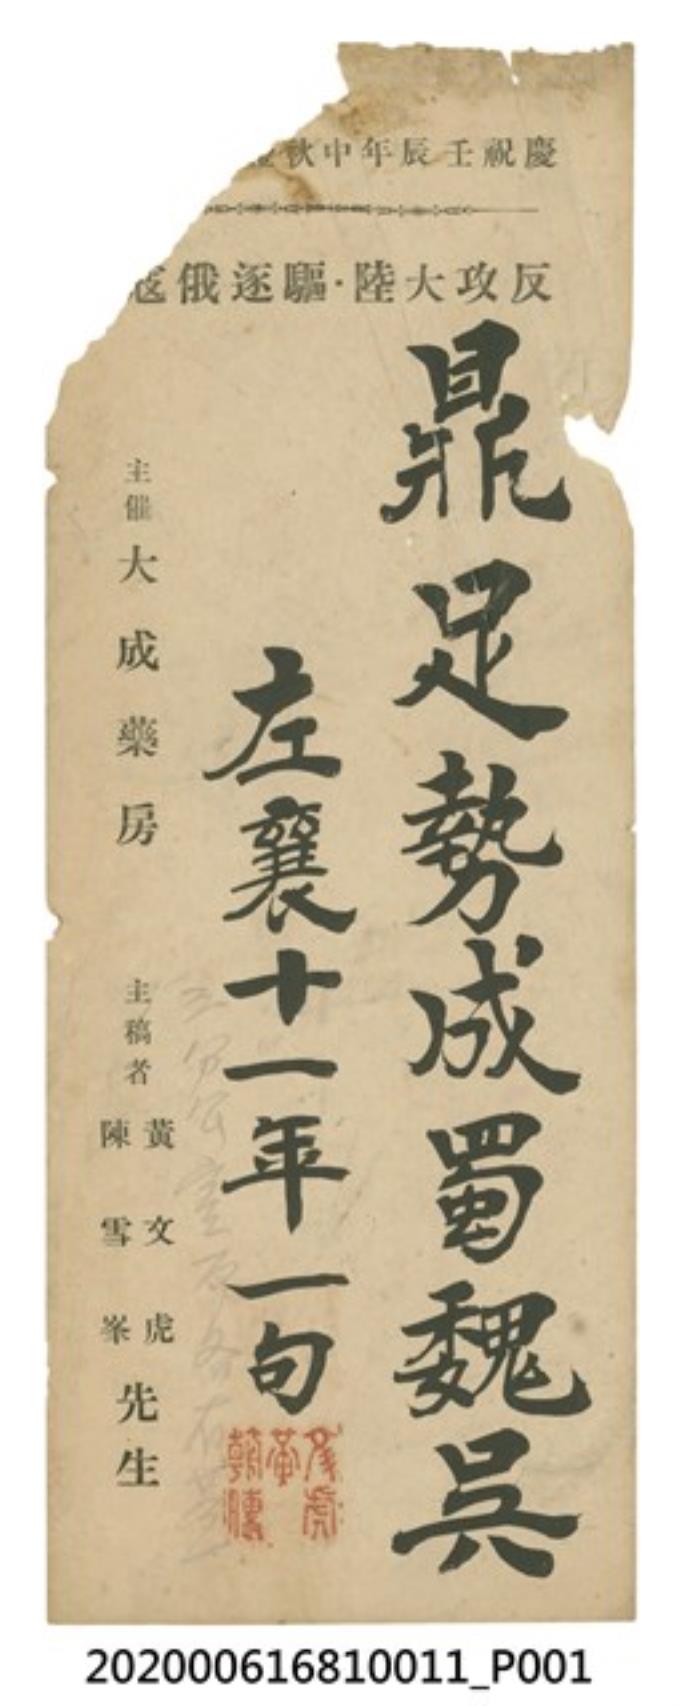 慶祝壬辰年中秋
反攻大陸·驅逐俄寇
鼎足勢成蜀魏吳
左襄十一年一句
主催 大成藥房
主稿者 黃文虎 陳雪峯 先生
202000616810011_P001